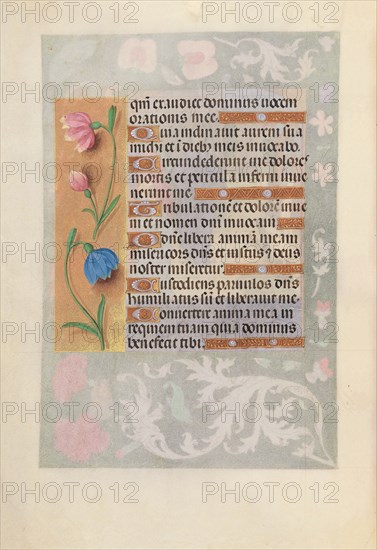 qm̄ exaudiet dominus uocem
orationis mee.
Quia inclinauit aurem sua
michi et ī diebꝫ meis inuocabo.
Circundederunt me dolore
mortis et pericula inferni inue
nerunt me.
Tribulationē et dolorē inue
ni et nomen dn̄i inuocaui.
O dn̄e libera animā meam
misericors dn̄s et iustus ⁊ deus
noster miseretur.
Custodiens paruulos dn̄s
humiliatus sū et liberauit me.
Conuertere anima mea in
requiem tuam quia dominus
benefecit tibi.
PHOTO 12
PHOTO 12
PHOTO 12
PHOTO 12
PHOTO 12
PHOTO 12
PHOTO 12
PHOTO 12
PHOTO 12
PHOTO 12
PHOTO 12
PHOTO 12